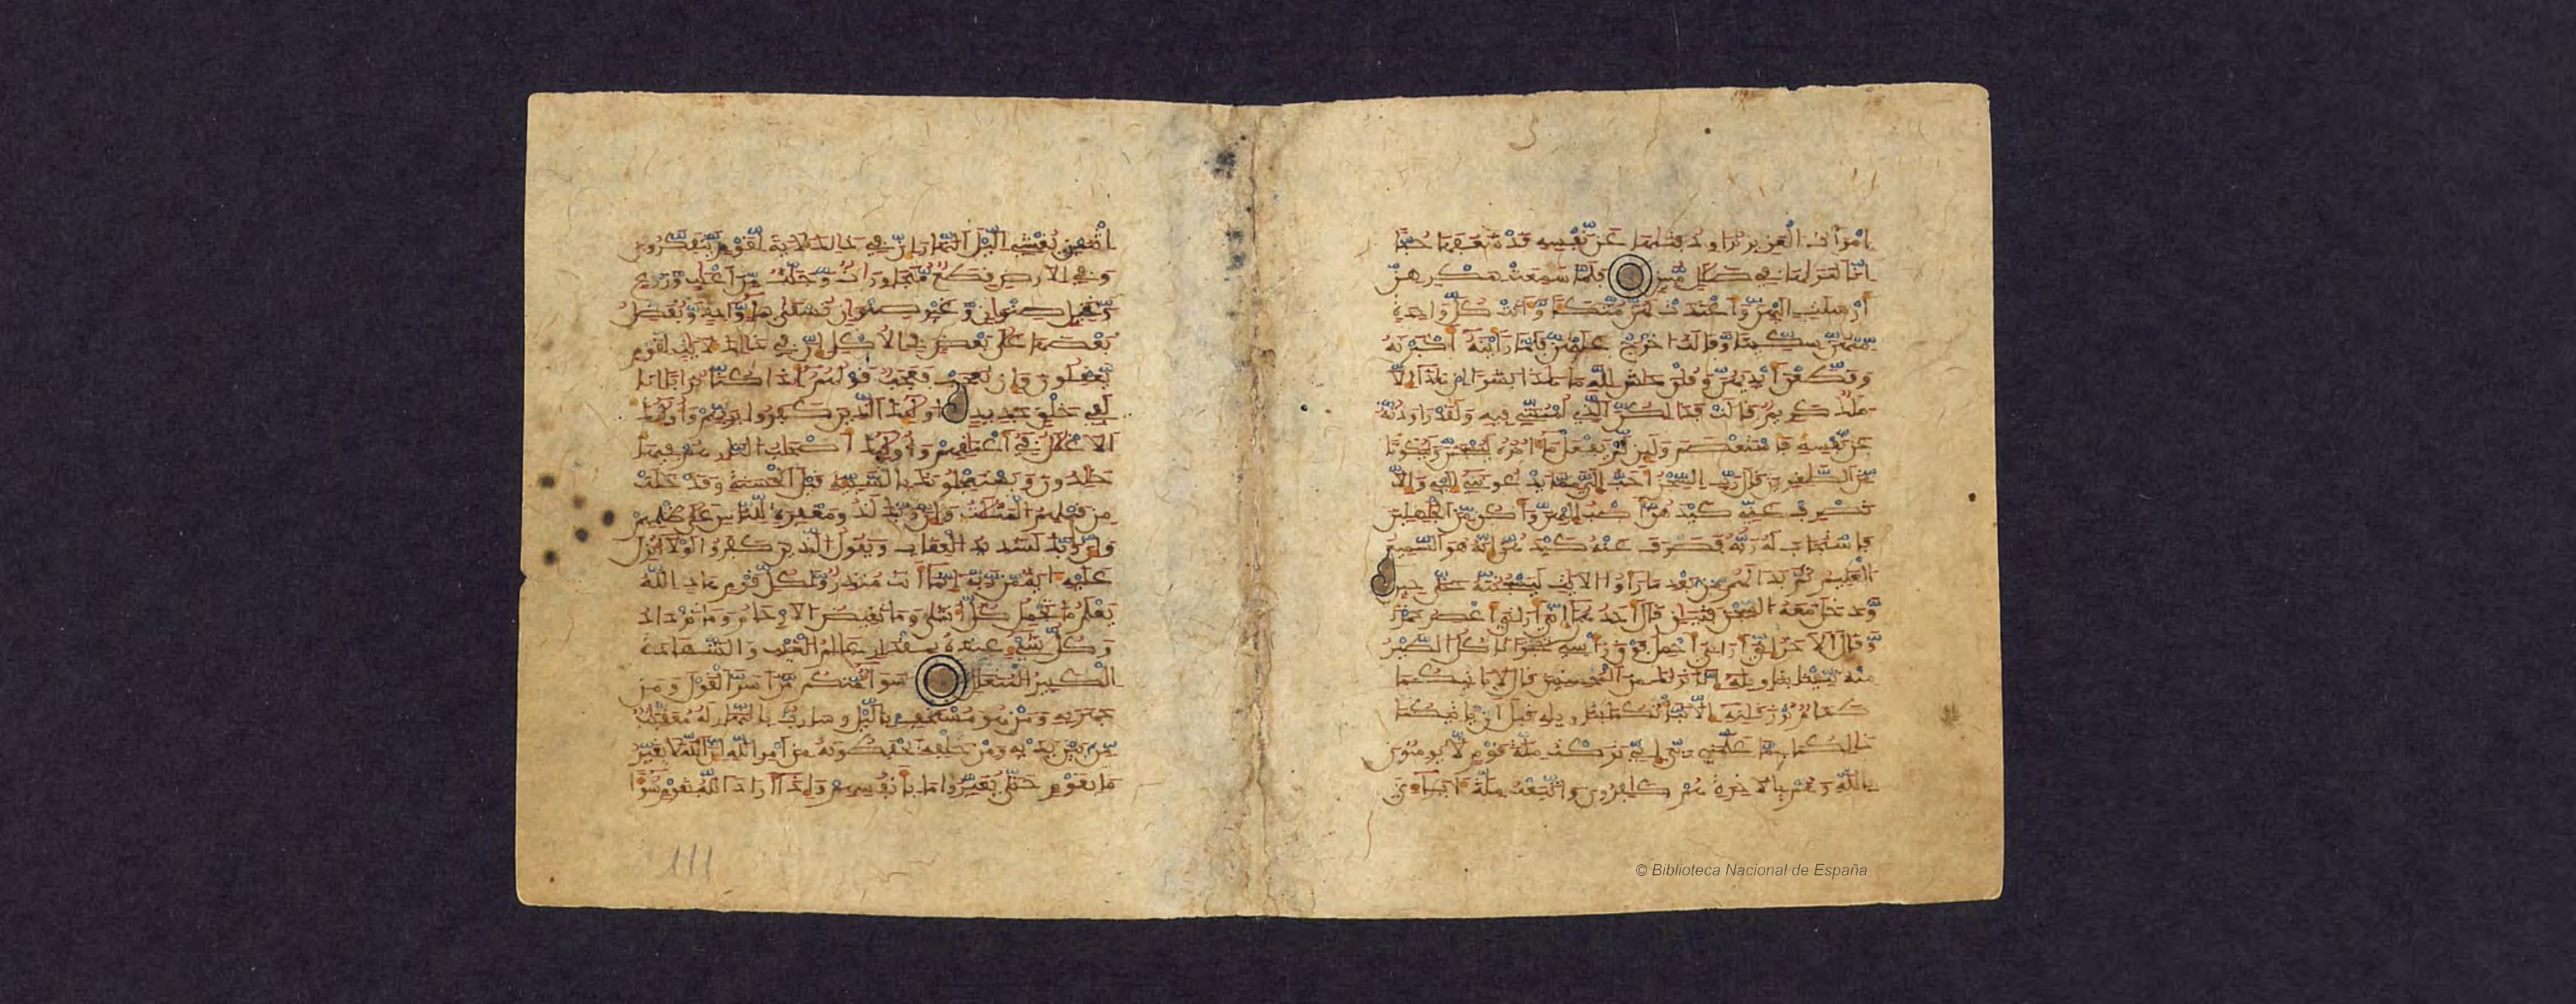 امرأت العزيز تراود فتيها عن نفسه قد شغفها حبا
انا لنريها في ضلل مبين فلما سمعت بمكرهن
أرسلت اليهن وأعتدت لهن متكا وءاتت كل واحدة
منهن سكينا وقالت اخرج عليهن فلما رأينه أكبرنه
وقطعن أيديهن وقلن حش لله ما هذا بشرا ان هذا الا
ملك كريم قالت فذلكن الذي لمتنني فيه ولقد راودته
عن نفسه فاستعصم ولين لم يفعل ما ءامره ليسجنن وليكونا
من الصغرين قال رب السجن أحب الي مما يدعونني اليه والا
تصرف عني كيدهن أصب اليهن وأكن من الجهلين
فاستجاب له ربه فصرف عنه كيدهن انه هو السميع
العليم ثم بدا لهم من بعد ما رأوا الايت ليسجننه حتى حين
ودخل معه السجن فتين قال أحدهما اني أريني أعصر خمرا
وقال الاخر اني أريني أحمل فوق رأسي خبزا تاكل الطير
منه نبينا بتاويله انا نريك من المحسنين قال لا ياتيكما
طعام ترزقنه الا نباتكما بتاويله قبل أن ياتيكما
ذلكما مما علمني ربي اني تركت ملة قوم لا يومنون
بالله وهم بالاخرة هم كفرون واتبعت ملة ءاباءي
اثنين يغشي اليل النهار ان في ذلك لايت لقوم يتفكرون
وفي الارض قطع متجورات وجنت من أعنب وزرع
ونخيل صنوان وغير صنوان تسقى بماء وحد ونفضل
بعضها على بعض في الاكل ان في ذلك لايت لقوم
يعقلون وان تعجب فعجب قولهم أءذا كنا تربا انا
لفي خلق جديد أوليك الذين كفروا بربهم وأوليك
الاغلل في أعنقهم وأوليك أصحب النار هم فيها
خلدون ويستعجلونك بالسيية قبل الحسنة وقد خلت
من قبلهم المثلت وان ربك لذو مغفرة للناس على ظلمهم
وان ربك لشديد العقاب ويقول الذين كفروا لولا أنزل
عليه ءاية من ربه انما أنت منذر ولكل قوم هاد الله
يعلم ما تحمل كل أنثى وما تغيض الارحام وما تزداد
وكل شيء عنده بمقدار علم الغيب والشهدة
الكبير المتعال سواء منكم من أسر القول ومن
جهر به ومن هو مستخف باليل وسارب بالنهار له معقبت
من بين يديه ومن خلفه يحفظونه من أمر الله ان الله لا يغير
ما بقوم حتى يغيروا ما بأنفسهم واذا أراد الله بقوم سوءا
111
© Biblioteca Nacional de España